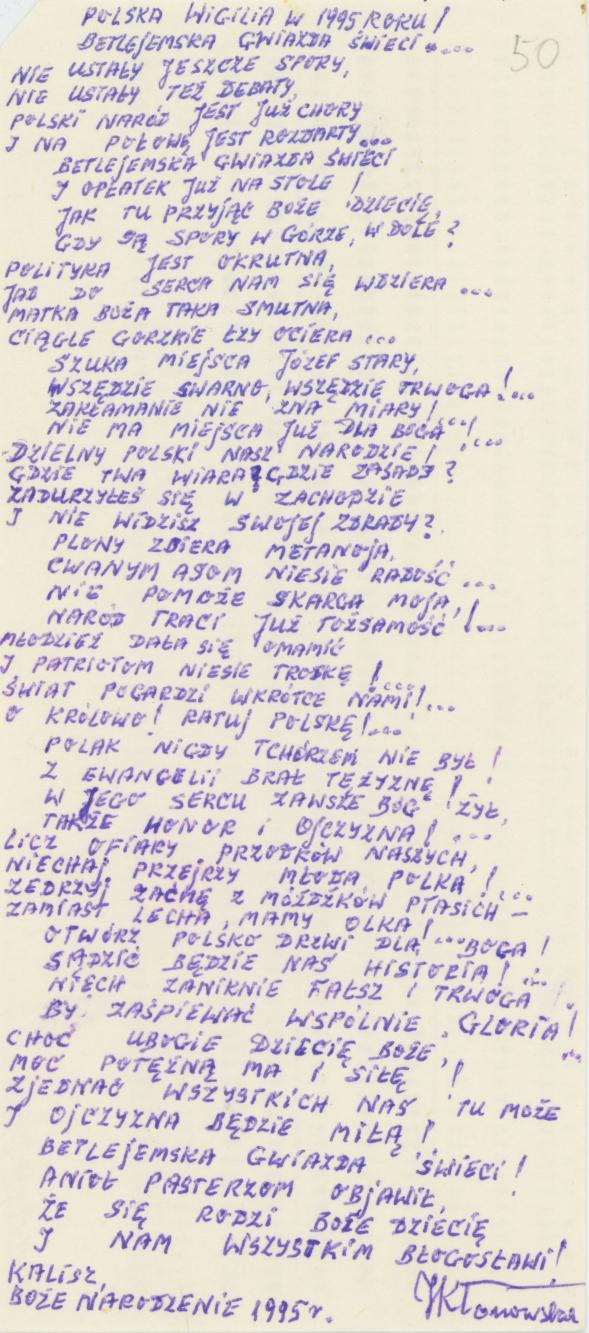 POLSKA WIGILIA W 1995 ROKU!
BETLEJEMSKA GWIAZDA ŚWIECI....
50
NIE USTAŁY JESZCZE SPORY,
NIE USTAŁY TEŻ DEBATY,
POLSKI NARÓD JEST JUŻ CHORY
I NA POŁOWĘ JEST ROZDARTY...
BETLEJEMSKA GWIAZDA ŚWIECI
I OPŁATEK JUŻ NA STOLE!
JAK TU PRZYJĄC BOŻE DZIECIĘ,
GDY SĄ SPORY W GÓRZE, W DOLE?
POLITYKA JEST OKRUTNA,
JAD DO SERCA NAM SIĘ WDZIERA...
MATKA BOŻA TAKA SMUTNA,
CIĄGLE GORZKIE ŁZY OCIERA...
SZUKA MIEJSCA JÓZEF STARY,
WSZĘDZIE SWARNO, WSZĘDZIE TRWOGA!...
ZAKŁAMANIE NIE ZNA MIARY!
NIE MA MIEJSCA JUŻ DLA BOGA...!
DZIELNY POLSKI NASZ NARODZIE!...
GDZIE TWA WIARA? GDZIE ZASADY?
ZADURZYŁEŚ SIĘ W ZACHODZIE
I NIE WIDZISZ SWOJEJ ZDRADY?
PLONY ZBIERA METANOJA,
CWANYM ASOM NIESIE RADOŚĆ...
NIE POMOŻE SKARGA MOJA,
NARÓD TRACI JUŻ TOŻSAMOŚĆ!...
MŁODZIEŻ DAŁA SIĘ OMAMIĆ
I PATRIOTOM NIESIE TROSKĘ!...
ŚWIAT POGARDZI WKRÓTCE NAMI!...
O KRÓLOWO! RATUJ POLSKĘ!...
POLAK NIGDY TCHÓRZEM NIE BYŁ!
Z EWANGELII BRAŁ TĘŻYZNĘ!
W JEGO SERCU ZAWSZE BÓG ŻYŁ,
TAKŻE HONOR I OJCZYZNA!...
LICZ OFIARY PRZODKÓW NASZYCH,
NIECHAJ PRZEJRZY MŁODA POLKA!...
ZEDRZYJ ZAĆMĘ Z MÓŻDŻKÓW PTASICH -
ZAMIAST LECHA, MAMY OLKA!
OTWÓRZ POLSKO DRZWI DLA...BOGA!
SĄDZIĆ BĘDZIE NAS HISTORIA!...
NIECH ZANIKNIE FAŁSZ I TRWOGA!
BY ZAŚPIEWAĆ WSPÓLNIE GLORIA!...
CHOĆ UBOGIE DZIECIĘ BOŻE,
MOC POTĘŻNĄ MA I SIŁĘ!
ZJEDNAĆ WSZYSTKICH NAS TU MOŻE
I OJCZYZNA BĘDZIE MIŁĄ!
BETLEJEMSKA GWIAZDA ŚWIECI!
ANIOŁ PASTERZOM OBJAWIŁ,
ŻE SIĘ RODZI BOŻE DZIECIĘ
I NAM WSZYSTKIM BŁOGOSŁAWI!
KALISZ,
BOŻE NARODZENIE 1995 r.